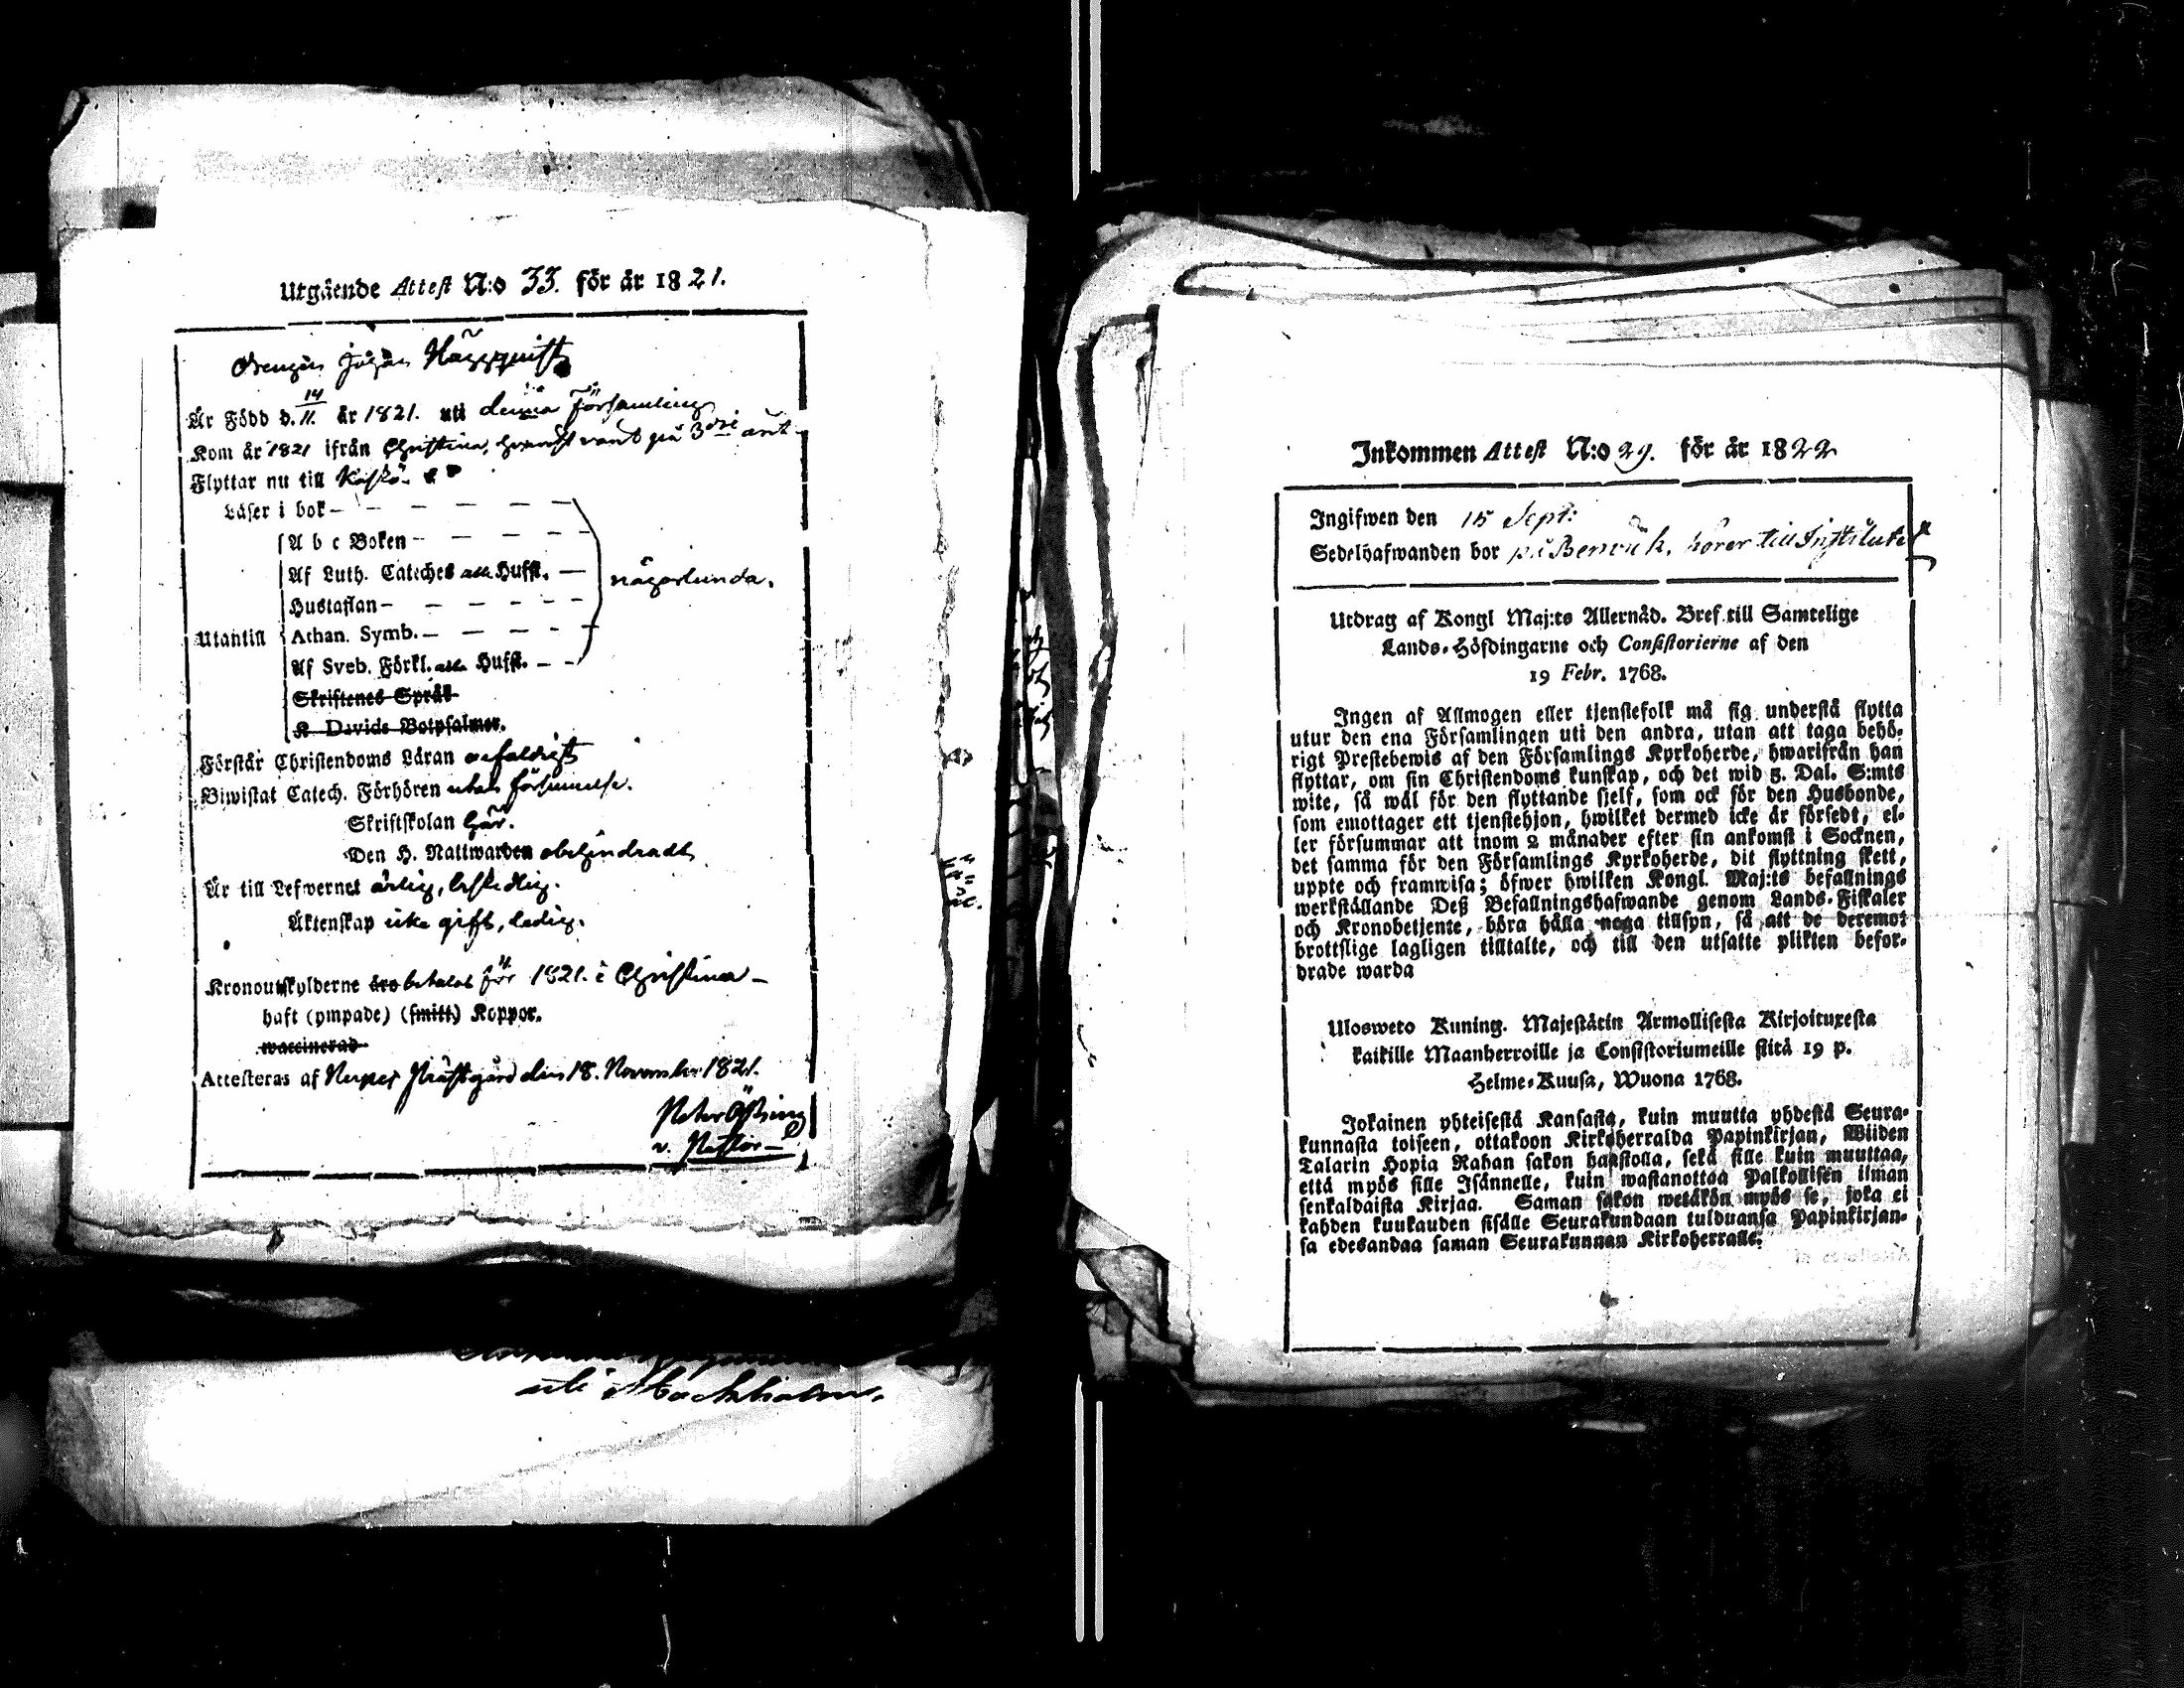 Utgående Attest N:o 33. för år 1821.
Drengen Johan Häggquist
Är Född d. 14/11. år 1821. uti denna Församling
Kom år 1821 ifrån Christina, hvarest varit på 3dje året
Flyttar nu till Kaskö.
Läser i bok — — — — —
A b c Boken — — — — —
Af Luth. Cateches alla Hufst. — någorlunda.
Hustaflan — — — — —
Utantill Athan. Symb. — — — — —
Af Sveb. Förkl. alla Hufst. — —
Skriftenes Språk
K Davids Botpsalmer.
Förstår Christendoms Läran enfaldigt
Biwistat Catech. Förhören utan försummelse.
Skriftskolan här.
Den H. Nattwarden obehindradt
Är till Lefvernet ärlig, beskedlig.
Äktenskap icke gift, ledig.
Kronoutskylderne äro betalat för 1821. i Christina —
haft (ympade) (smitt) Koppor.
waccinerad
Attesteras af Nerpes Prästgård den 18. November 1821.
Peter Östring
v. Pastor —
uti Stockholm.
Inkommen Attest N:o 29. för år 1822
Ingifwen den 15 Sept:
Sedelhafwanden bor på Benvik, hörer till Institutet
Utdrag af Kongl Maj:ts Allernåd. Bref till Samtelige
Lands-Höfdingarne och Consistorierne af den
19 Febr. 1768.
Ingen af Allmogen eller tjenstefolk må sig understå flytta
utur den ena Församlingen uti den andra, utan att taga behö-
rigt Prestebewis af den Församlings Kyrkoherde, hwarifrån han
flyttar, om sin Christendoms kunskap, och det wid 5. Dal. S:mts
wite, så wäl för den flyttande sjelf, som ock för den Husbonde,
som emottager ett tjenstehjon, hwilket dermed icke är försedt, el-
ler försummar att inom 2 månader efter sin ankomst i Socknen,
det samma för den Församlings Kyrkoherde, dit flyttning skett,
uppte och framwisa; öfwer hwilken Kongl. Maj:ts befallnings
werkställande Deß Befallningshafwande genom Lands-Fiskaler
och Kronobetjente, böra hålla noga tillsyn, så att de deremot
brottslige lagligen tilltalte, och till den utsatte plikten befor-
drade warda
Ulosweto Kuning. Majestätin Armollisesta Kirjoituxesta
kaikille Maanherroille ja Consistoriumeille siitä 19 p.
Helme-Kuusa, Wuona 1768.
Jokainen yhteisestä Kansasta, kuin muutta yhdestä Seura-
kunnasta toiseen, ottakoon Kirkoherralda Papinkirjan, Wiiden
Talarin Hopia Rahan sakon haastolla, sekä sille kuin muuttaa,
että myös sille Isännelle, kuin wastanottaa Palkollisen ilman
senkaldaista Kirjaa. Saman sakon wetäkön myös se, joka ei
kahden kuukauden sisälle Seurakundaan tulduansa Papinkirjan-
sa edesandaa saman Seurakunnan Kirkoherralle.